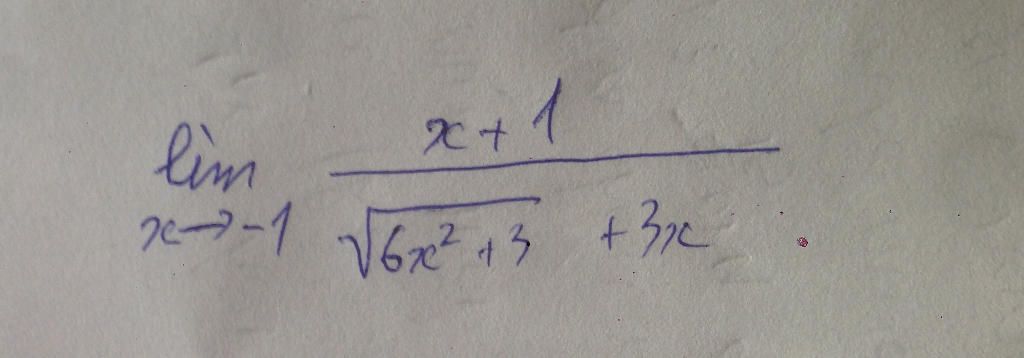 lim x→-1 (x+1)/(√(6x²+3) +3x)